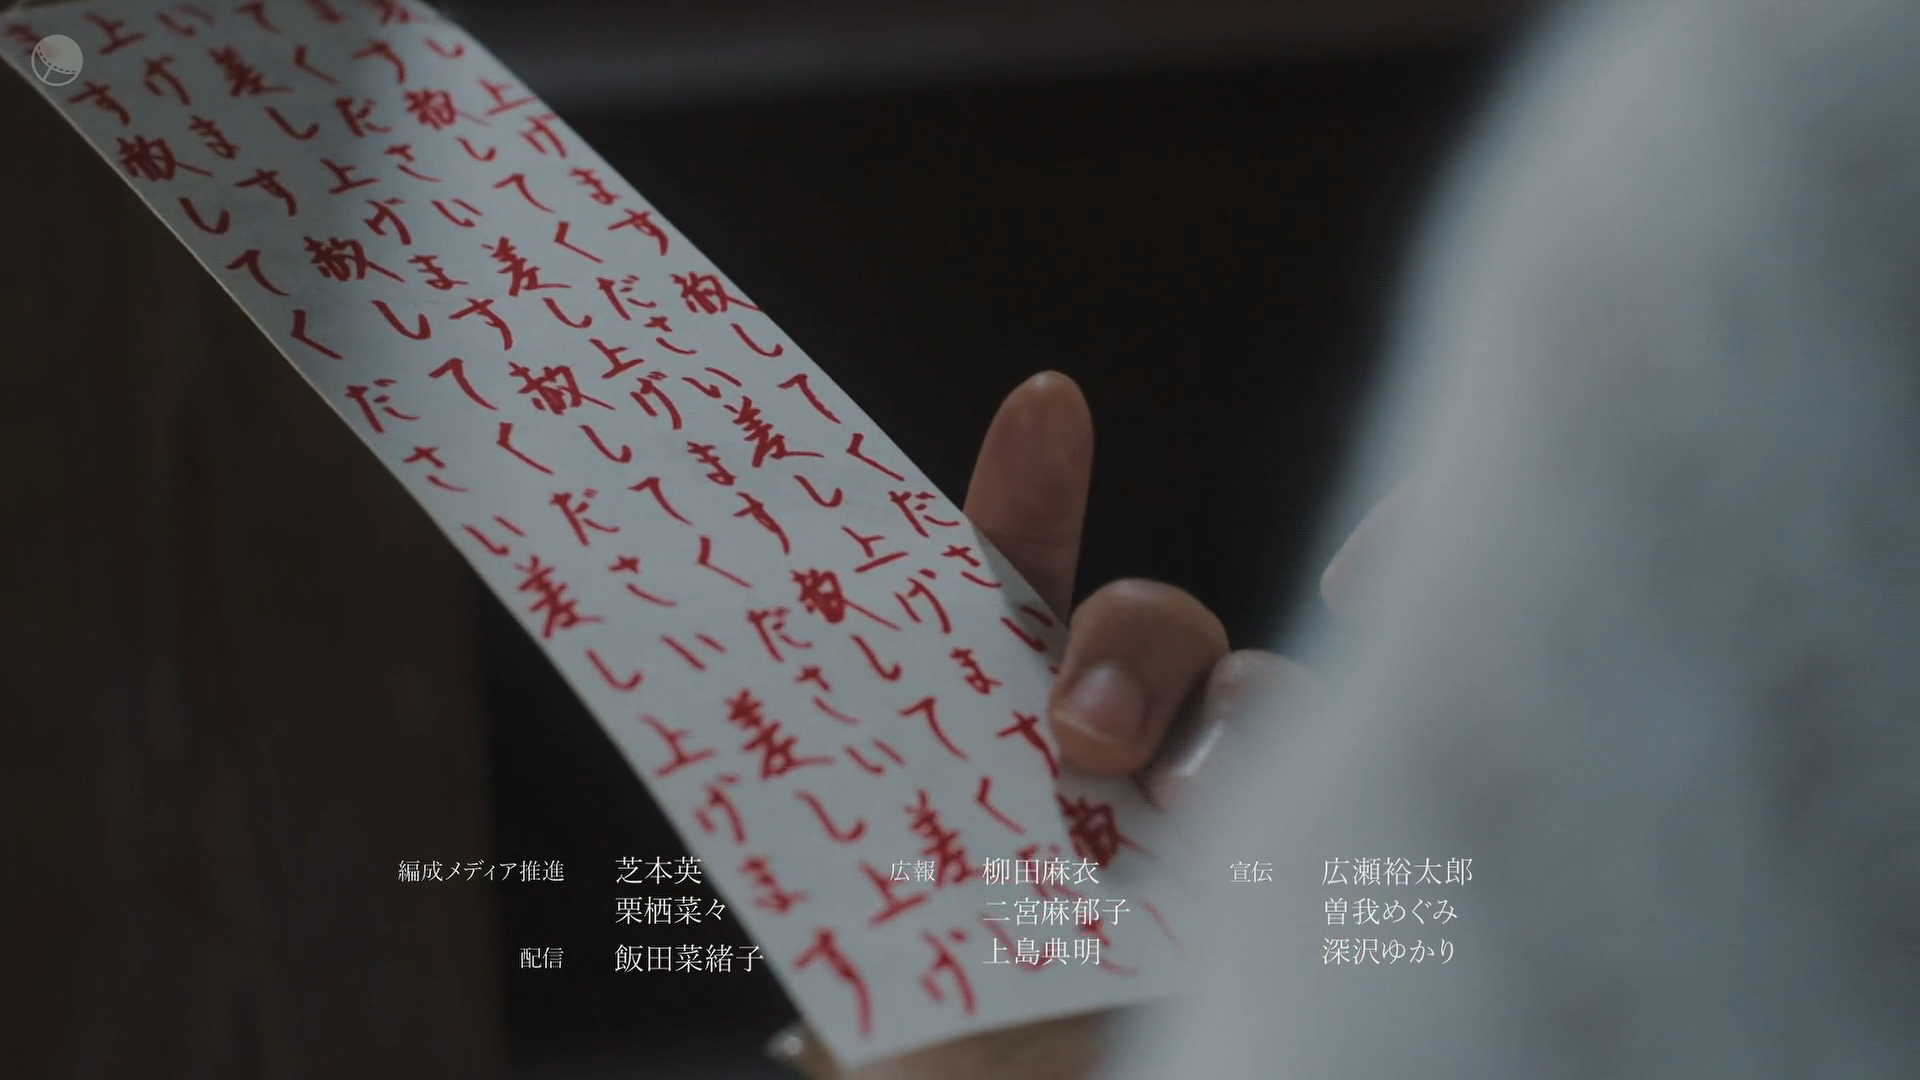 差し上げます赦してください
ます赦してください差し上げます赦
てください差し上げます赦してくださ
い差し上げます赦してください差
上げます赦してください差し上げ
ます赦してください差し上げます
編成メディア推進 芝本英
栗栖菜々
配信 飯田菜緒子
広報 柳田麻衣
二宮麻郁子
上島典明
宣伝 広瀬裕太郎
曽我めぐみ
深沢ゆかり